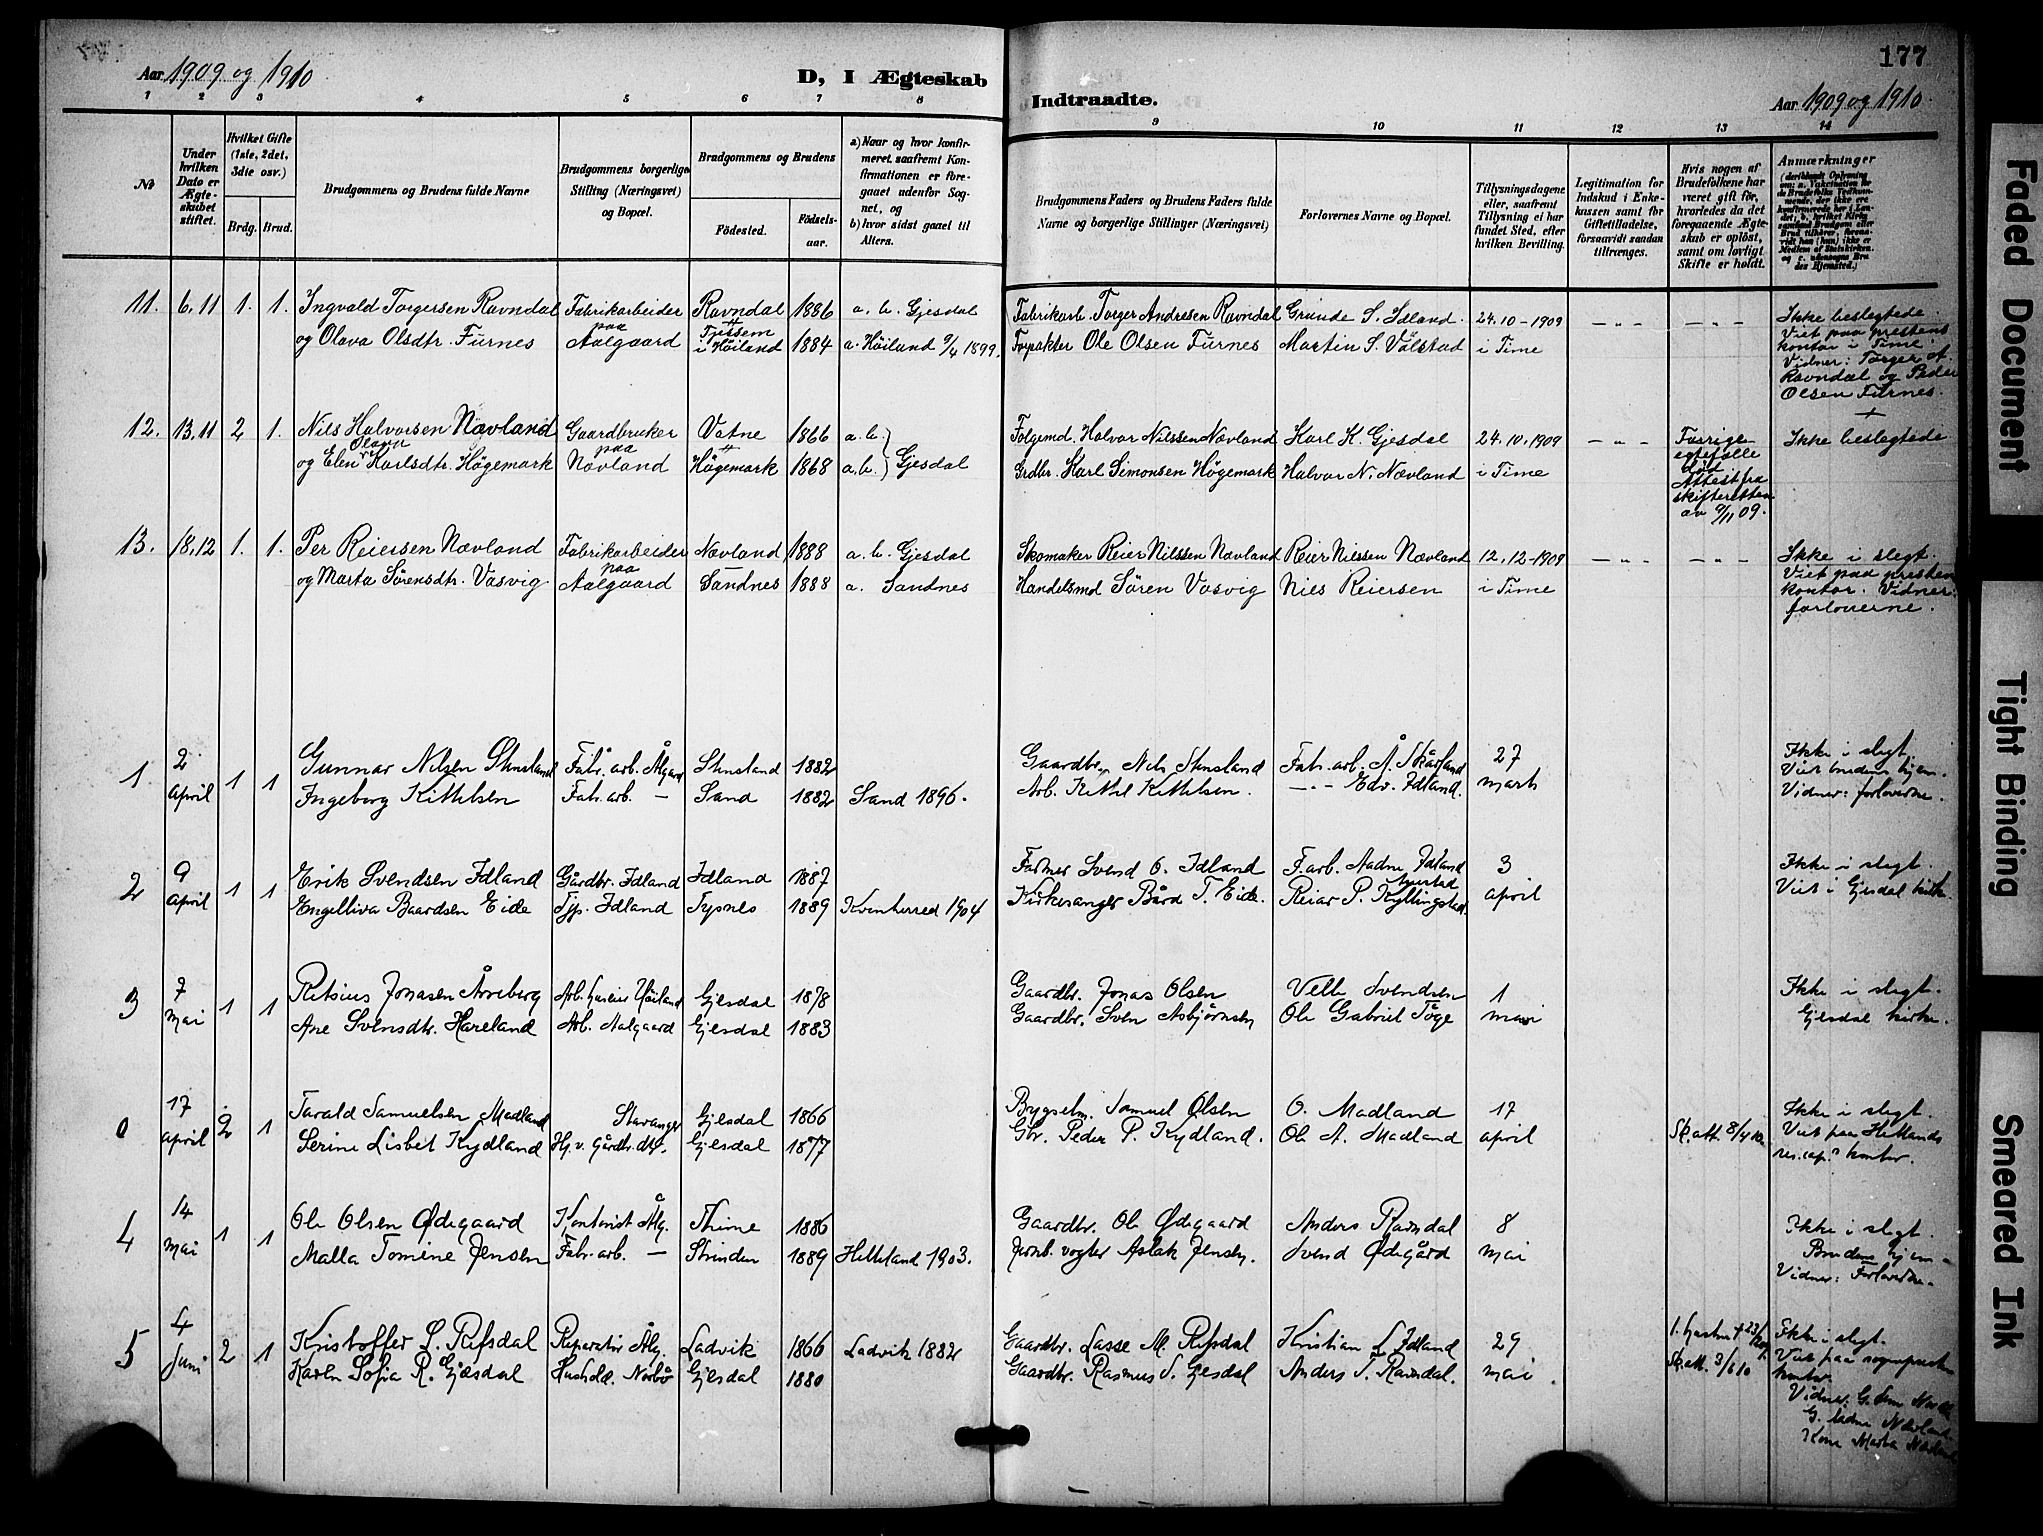 Aar 1909 og 1910
D, I Ægteskab
Indtraadte.
177
Aar 1909 og 1910.
1 2 3 4 5 6 7 8 9 10 11 12 13 14
№
Under hvilken Dato er Ægteskabet stiftet.
Hvilket Gifte (1ste, 2det, 3die osv.)
Brdg. Brud.
Brudgommens og Brudens fulde Navne
Brudgommens borgerlige Stilling (Næringsvei) og Bopæl.
Brudgommens og Brudens
Fødested.
Fødselsaar.
a) Naar og hvor konfirmeret, saafremt Konfirmationen er foregaaet udenfor Sognet, og
b) hvor sidst gaaet til Alters.
Brudgommens Faders og Brudens Faders fulde Navne og borgerlige Stillinger (Næringsvei)
Forlovernes Navne og Bopæl.
Tillysningsdagene eller, saafremt Tillysning ei har fundet Sted, efter hvilken Bevilling.
Legitimation for Indskud i Enkekassen samt for Giftetilladelse, forsaavidt saadan tiltrænges.
Hvis nogen af Brudefolkene har været gift før, hvorledes da det foregaaende Ægteskab er opløst, samt om lovligt Skifte er holdt.
Anmærkninger
11. 6.11 1. 1. Ingvald Torgersen Ravndal Fabrikarbeider Ravndal 1886 a. b. Gjesdal Fabrikarb. Torger Andresen Ravndal Grunde S. Idland. 24.10-1909 — „ — — „ — Ikke beslegtede.
og Olava Olsdtr. Furnes paa Aalgaard i Høiland 1884 a. Høiland 9/4 1899. Forpakter Ole Olsen Furnes Martin S. Valstad i Time
Viet paa prestens
kontor i Time.
Vidner: Torger A.
Ravndal og Peder
Olsen Furnes.
12. 13.11 2 1. Nils Halvorsen Nævland Gaardbruker Vatne 1866 a.b. Følgemd. Halvor Nilssen Nævland Karl K. Gjesdal 24.10.1909 — „ — Forrige Ikke beslegtede
og Elen Karlsdtr. Høgemark paa Nævland Høgemark 1868 a.b. Gjesdal Grdbr. Karl Simonsen Høgemark Halvor N. Nævland i Time
egtefælle
død
Attest fra
skifteretten
av 9/11 09.
13. 18.12 1. 1. Per Reiersen Nævland Fabrikarbeider Nævland 1888 a. b. Gjesdal Skomaker Reier Nilssen Nævland Reier Nilssen Nævland 12.12-1909 — „ — — „ — Ikke i slegt.
og Marta Sørensdtr. Vasvig paa Aalgaard Sandnes 1888 a. Sandnes Handelsmd Søren Vasvig Nils Reiersen i Time
Viet paa prestens
kontor. Vidner:
forloverne.
1 2 april 1 1 Gunnar Nilsen Stensland Fabr. arb. Ålgård Stensland 1882 Gaardbr. Nils Stensland Fabr. arb. A. Skårland 27 Ikke i slegt.
Ingeborg Kittelsen Fabr. arb. — Sand 1882 Sand 1896. Arb. Kittel Kittelsen. — „ — Edv. Idland. marts
Viet brudens hjem.
Vidner: forloverne.
2 9 april 1 1 Erik Svendsen Idland Gårdbr. Idland Idland 1887 Farmer Svend O. Idland F. arb. Aadne Idland 3 Ikke i slegt.
Engelliva Baardsen Eide Tjp. Idland Tysnes 1889 Kvinherred 1904 Kirkesanger Bård T. Eide. Reiar P. Kyllingstad. april
Viet i Gjesdal kirke.
3 7 mai 1 1 Retsius Jonasen Arneberg Arb. Høiland Gjesdal 1878 Gaardbr. Jonas Olsen Velle Svendsen 1 Ikke i slegt.
Ane Svensdtr. Hareland Arb. Aalgaard Gjesdal 1883 Gaardbr. Sven Asbjørnsen Ole Gabriel Tåge mai
Gjesdal kirke.
0 17 april 2 1 Tarald Samuelsen Madland Stavanger Gjesdal 1866 Bygselm. Samuel Olsen O. Madland 17 Ikke i slegt.
Serine Lisbet Kydland Hj. v. gårdbr. dtr. Gjesdal 1877 Gbr. Peder P. Kydland. Ole A. Madland april Sk. att. 8/4 10. Viet paa Hetlands
res. cap.s kontor.
4 14 mai 1 1 Ole Olsen Ødegaard Kontorist Ålg. Thime 1886 Gaardbr. Ole Ødegaard Anders Ravndal 8 Ikke i slegt.
Malla Tomine Jensen Fabr. arb. — Strinden 1889 Helleland 1903. Jernb. vogter Aslak Jensen. Svend Ødegård mai
Brudens hjem.
Vidner: Forloverne.
5 4 Juni 2 1 Kristoffer L. Refsdal Reparatør Ålg. Ladvik 1866 Ladvik 1882 Gaardbr. Lasse M. Refsdal Kristian L Idland 29 Ikke i slegt.
Karen Sofia R. Gjesdal Hushold. Norbø Gjesdal 1880 Gaardbr. Rasmus S. Gjesdal Anders T. Ravndal. mai Sk. att. 3/6 10
Viet paa sogneprestens
kontor.
Faded Document
Tight Binding
Smeared Ink